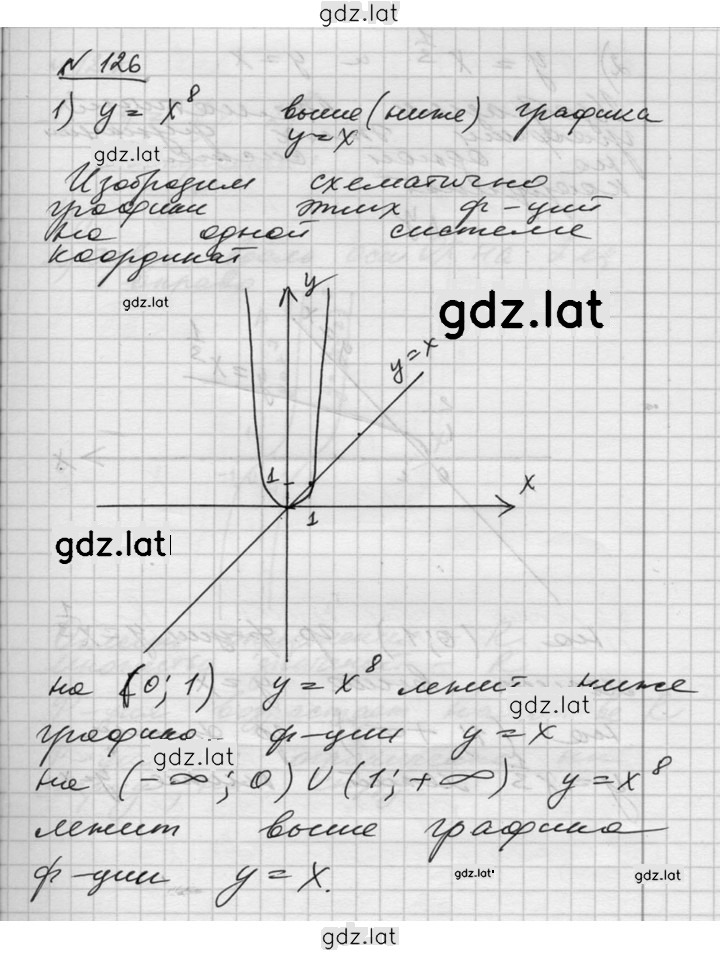 gdz.lat
N 126
1) y = x⁸ выше (ниже) графика
y = x
gdz.lat
Изобразим схематично
графики этих ф-ций
на одной системе
координат
gdz.lat
y
gdz.lat
y = x
1
x
1
gdz.lat
на (0; 1) y = x⁸ лежит ниже
gdz.lat
графика ф-ции y = x
gdz.lat
на (-∞; 0) ∪ (1; +∞) y = x⁸
лежит выше графика
ф-ции y = x.
gdz.lat
gdz.lat
gdz.lat